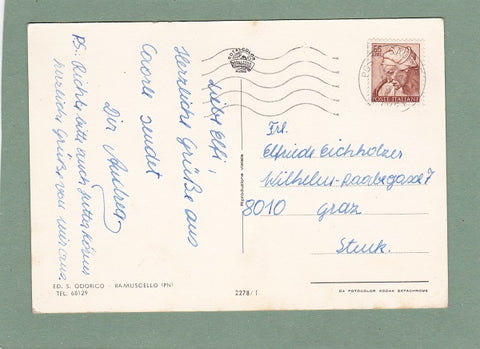 Liebe Elfi,
Herzliche Grüße aus
Caorle sendet
Dir Andrea
PS. Richte bitte auch
herzliche Grüße von mir aus.
ROTALCOLOR
55
POSTE ITALIANE
Frl.
Elfriede Eichholzer
Wilhelm-Raabegasse 7
8010 Graz
Stmk.
ED. S. ODORICO - RAMUSCELLO (PN)
TEL. 68129
2278/1
DA FOTOCOLOR KODAK EKTACHROME